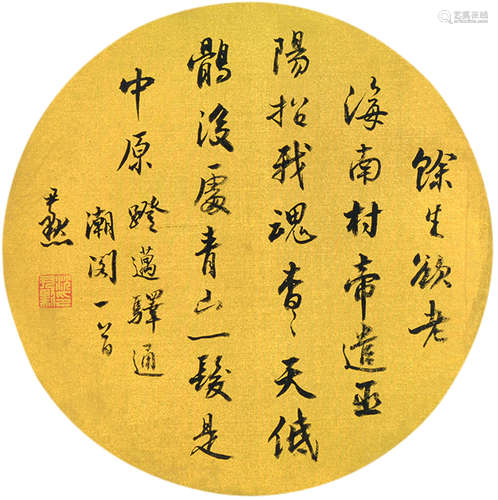 餘生欲老
海南村帝遣巫
陽招我魂杳〻天低
鶻没處青山一髮是
中原
澄邁驛通
潮閣一首
尹默